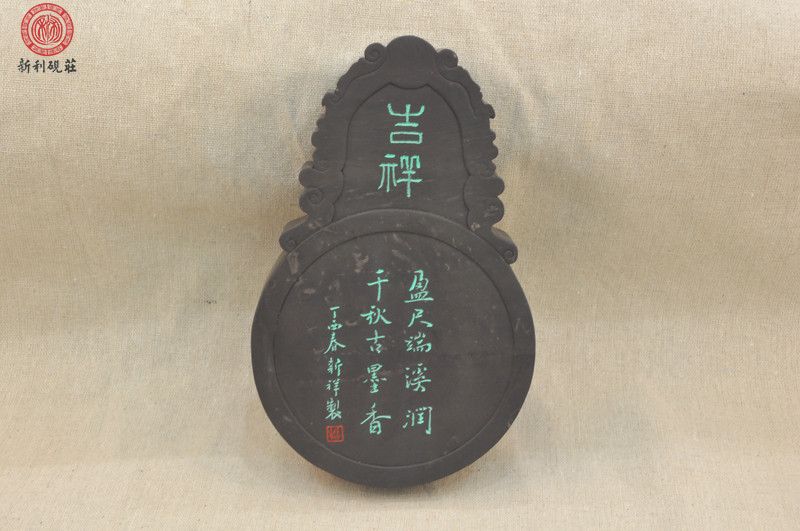 新利砚莊
吉祥
盈尺端溪润
千秋古墨香
丁酉春新祥製